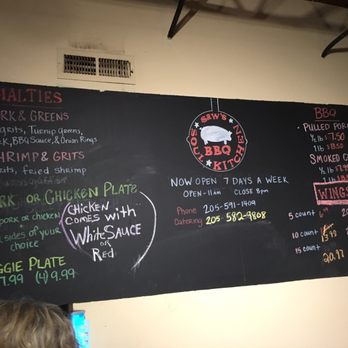 IALTIES
RK & GREENS
grits, Turnip Greens,
K, BBQ Sauce, & Onion Rings
SHRIMP & GRITS
rits, fried shrimp
RK OR CHICKEN PLATE
pork or chicken
sides of your
choice
GGIE PLATE
7.99 (4) 9.99
CHICKEN
COMES WITH
White SAUCE
or
RED
SAW'S
BBQ
SOUL KITCHEN
NOW OPEN 7 DAYS A WEEK
OPEN-11am CLOSE 8pm
Phone 205-591-1409
Catering 205-582-9808
BBQ
PULLED POR
1/2 lb 7.50
1 lb
SMOKED C
WINGS
5 count
10 count
15 count
20.97